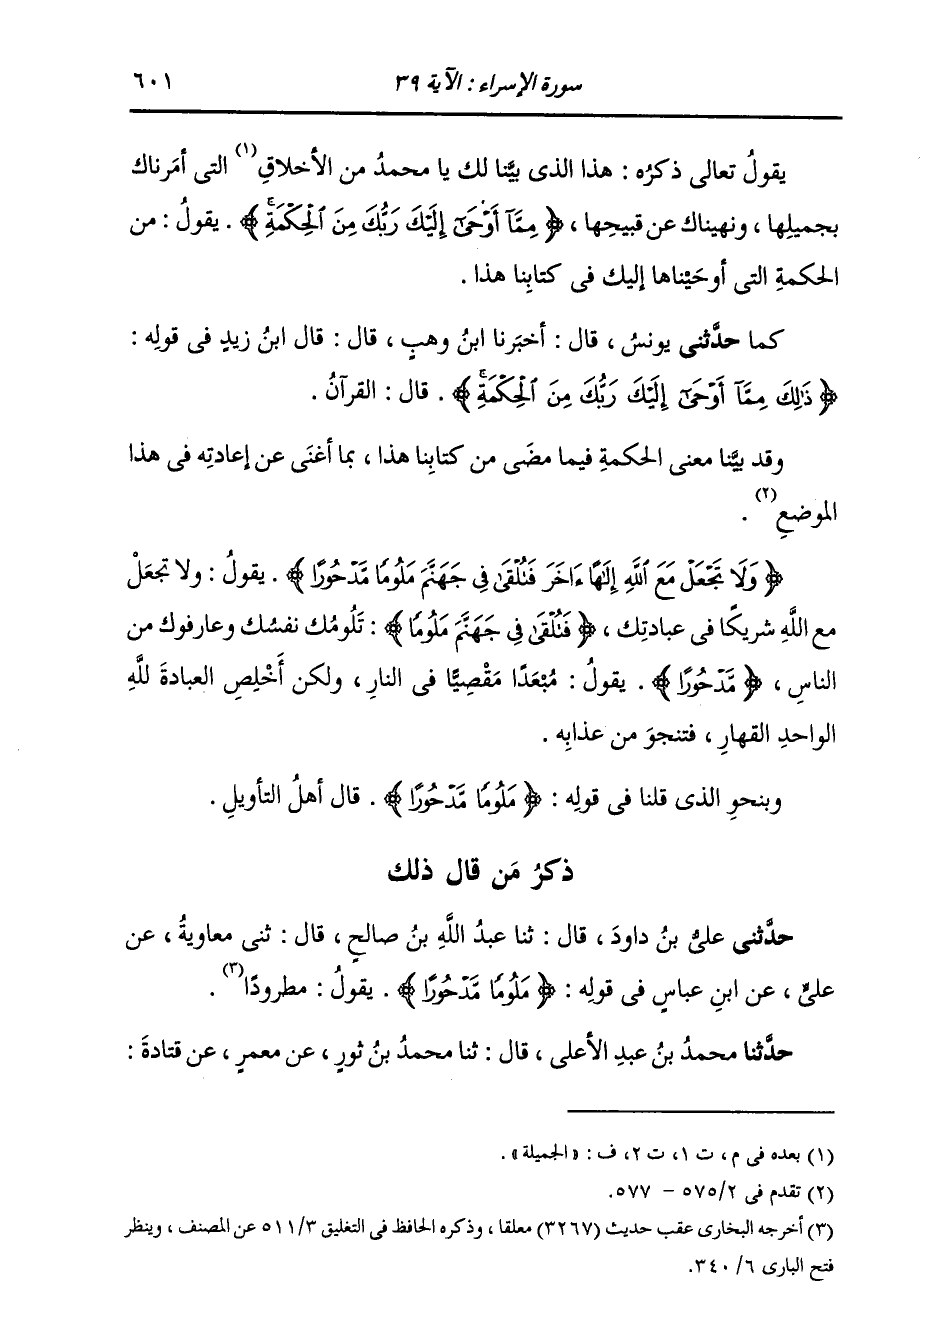 سورة الإسراء : الآية ٣٩ ٦٠١
يقولُ تعالى ذكرُه : هذا الذى بيَّنا لك يا محمدُ من الأخلاقِ(١) التى أمَرناك
بجميلِها ، ونهيناك عن قبيحِها ، ﴿ مِمَّآ أَوْحَىٰٓ إِلَيْكَ رَبُّكَ مِنَ ٱلْحِكْمَةِ ﴾ . يقولُ : من
الحكمةِ التى أوحَيْناها إليك فى كتابِنا هذا .
كما حدَّثنى يونسُ ، قال : أخبَرنا ابنُ وهبٍ ، قال : قال ابنُ زيدٍ فى قولِه :
﴿ ذَٰلِكَ مِمَّآ أَوْحَىٰٓ إِلَيْكَ رَبُّكَ مِنَ ٱلْحِكْمَةِ ﴾ . قال : القرآنُ .
وقد بيَّنا معنى الحكمةِ فيما مضَى من كتابِنا هذا ، بما أغنَى عن إعادتِه فى هذا
الموضعِ(٢) .
﴿ وَلَا تَجْعَلْ مَعَ ٱللَّهِ إِلَٰهًا ءَاخَرَ فَتُلْقَىٰ فِى جَهَنَّمَ مَلُومًا مَّدْحُورًا ﴾ . يقولُ : ولا تجعَلْ
مع اللَّهِ شريكًا فى عبادتِك ، ﴿ فَتُلْقَىٰ فِى جَهَنَّمَ مَلُومًا ﴾ : تَلُومُك نفسُك وعارفوك من
الناسِ ، ﴿ مَّدْحُورًا ﴾ . يقولُ : مُبْعَدًا مَقْصِيًّا فى النارِ ، ولكن أَخْلِصِ العبادةَ للَّهِ
الواحدِ القهارِ ، فتنجوَ من عذابِه .
وبنحوِ الذى قلنا فى قولِه : ﴿ مَلُومًا مَّدْحُورًا ﴾ . قال أهلُ التأويلِ .
ذكرُ مَن قال ذلك
حدَّثنى علىُّ بنُ داودَ ، قال : ثنا عبدُ اللَّهِ بنُ صالحٍ ، قال : ثنى معاويةُ ، عن
علىٍّ ، عن ابنِ عباسٍ فى قولِه : ﴿ مَلُومًا مَّدْحُورًا ﴾ . يقولُ : مطرودًا(٣) .
حدَّثنا محمدُ بنُ عبدِ الأعلى ، قال : ثنا محمدُ بنُ ثورٍ ، عن معمرٍ ، عن قتادةَ :
(١) بعده فى م ، ت ١، ت ٢، ف : «الجميلة» .
(٢) تقدم فى ٥٧٥/٢ - ٥٧٧.
(٣) أخرجه البخارى عقب حديث (٣٢٦٧) معلقا ، وذكره الحافظ فى التغليق ٥١١/٣ عن المصنف ، وينظر
فتح البارى ٣٤٠/٦.